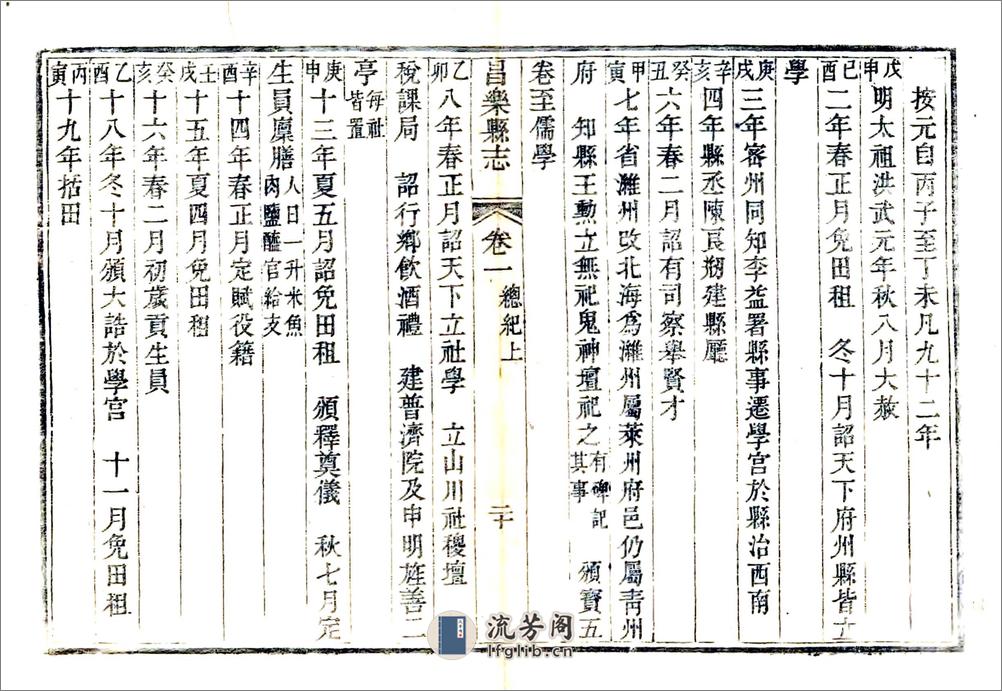 按元自丙子至丁未凡九十二年
戊申明太祖洪武元年秋八月大赦
己酉二年春正月免田租　冬十月詔天下府州縣皆立
學
庚戌三年密州同知李益署縣事遷學宮於縣治西南
辛亥四年縣丞陳良剏建縣廳
癸丑六年春二月詔有司察舉賢才
甲寅七年省濰州改北海為濰州屬萊州府邑仍屬青州
府　知縣王勲立無祀鬼神壇祀之有碑記其事　頒寶五
卷至儒學
昌樂縣志　卷一　總紀上　二十
乙卯八年春正月詔天下立社學　立山川社稷壇
稅課局　詔行鄉飲酒禮　建普濟院及申明旌善二
亭每社皆置
庚申十三年夏五月詔免田租　頒釋奠儀　秋七月定
生員廩膳人日一升米魚肉鹽醢官給支
辛酉十四年春正月定賦役籍
壬戌十五年夏四月免田租
癸亥十六年春二月初歲貢生員
乙酉十八年冬十月頒大誥於學宮　十一月免田租
丙寅十九年括田
流芳阁
lfglib.cn